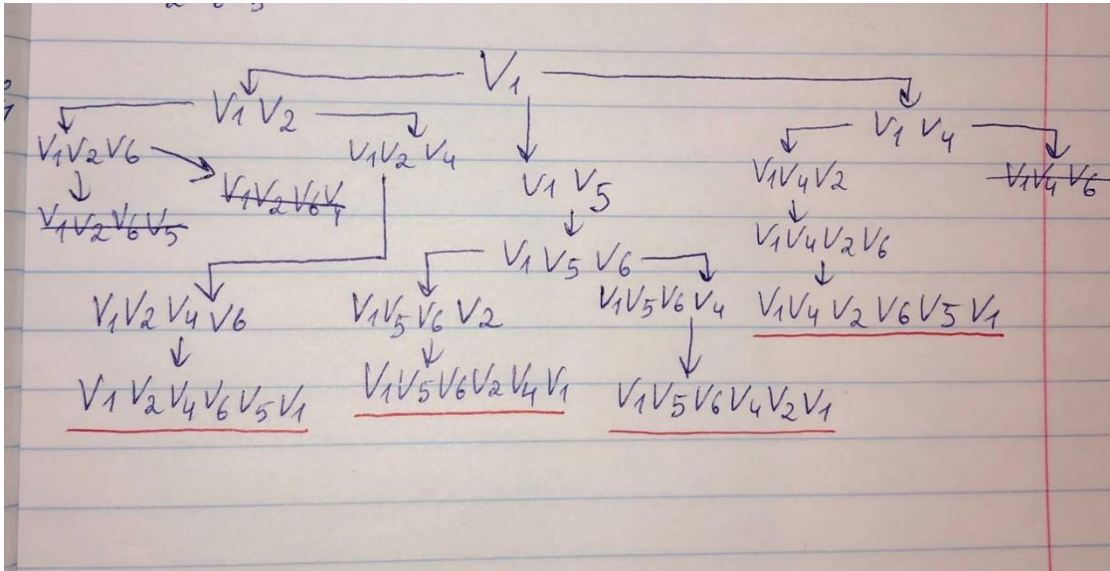 V1
V1 V2
V1 V4
V1V2V6
V1V2 V4
V1V4V2
V1V4 V6
V1V2V6V4
V1 V5
V1V2V6V5
V1V4V2V6
V1 V5 V6
V1V2 V4 V6
V1V5V6 V2
V1V5V6V4
V1V4 V2 V6 V5 V1
V1 V2 V4 V6 V5 V1
V1V5V6V2V4V1
V1V5V6V4V2V1